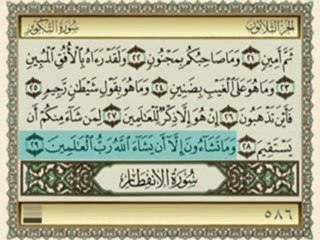 سورة التكوير
الجزء الثلاثون
ثَمَّ أَمِينٍ ٢١ وَمَا صَاحِبُكُم بِمَجْنُونٍ ٢٢ وَلَقَدْ رَءَاهُ بِالْأُفُقِ الْمُبِينِ
٢٣ وَمَا هُوَ عَلَى الْغَيْبِ بِضَنِينٍ ٢٤ وَمَا هُوَ بِقَوْلِ شَيْطَانٍ رَّجِيمٍ ٢٥
فَأَيْنَ تَذْهَبُونَ ٢٦ إِنْ هُوَ إِلَّا ذِكْرٌ لِّلْعَالَمِينَ ٢٧ لِمَن شَاءَ مِنكُمْ أَن
يَسْتَقِيمَ ٢٨ وَمَا تَشَاءُونَ إِلَّا أَن يَشَاءَ اللَّهُ رَبُّ الْعَالَمِينَ ٢٩
سُورَةُ الانفِطَارِ
٥٨٦